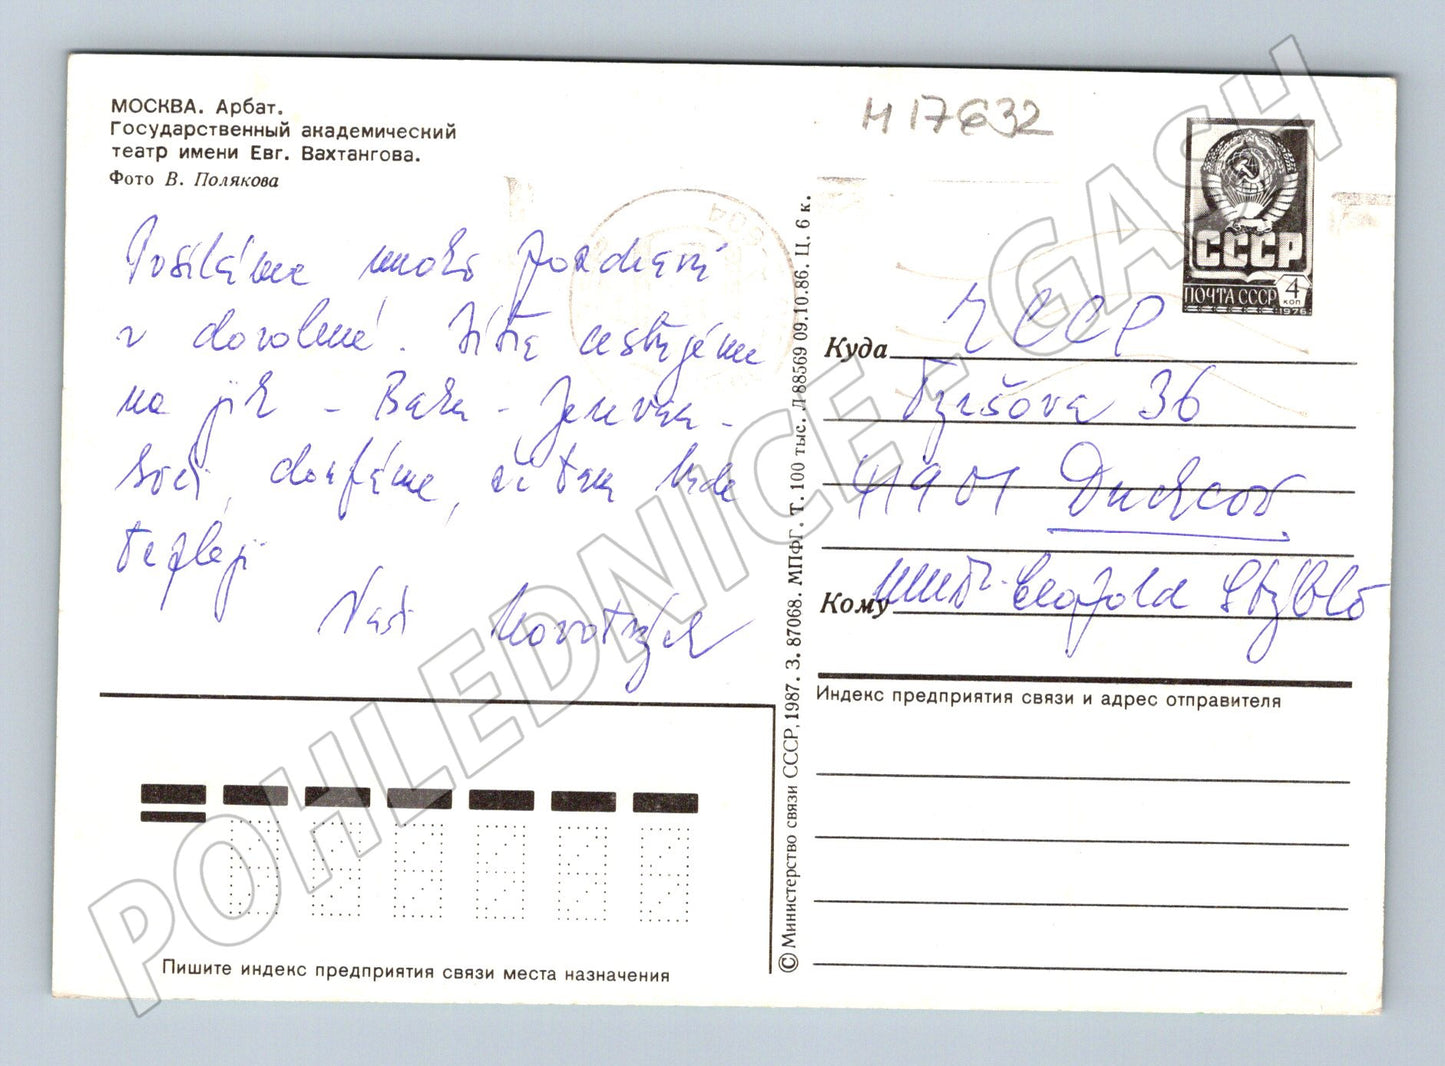 МОСКВА. Арбат.
Государственный академический
театр имени Евг. Вахтангова.
Фото В. Полякова
Posíláme moho pozdravů
z dovolené. Zítra cestujeme
na jih - Baku - Jerevan -
Soči, doufáme, že tam bude
tepleji
Vaši
H 17632
СССР
ПОЧТА СССР 4
КОП
1976
Куда ЧССР
Tyršova 36
41901 Duchcov
Кому Leopold
Индекс предприятия связи и адрес отправителя
© Министерство связи СССР, 1987. З. 87068. МПФГ. Т. 100 тыс. Л 88569 09.10.86. Ц. 6 к.
Пишите индекс предприятия связи места назначения
POHLEDNICE - GASH